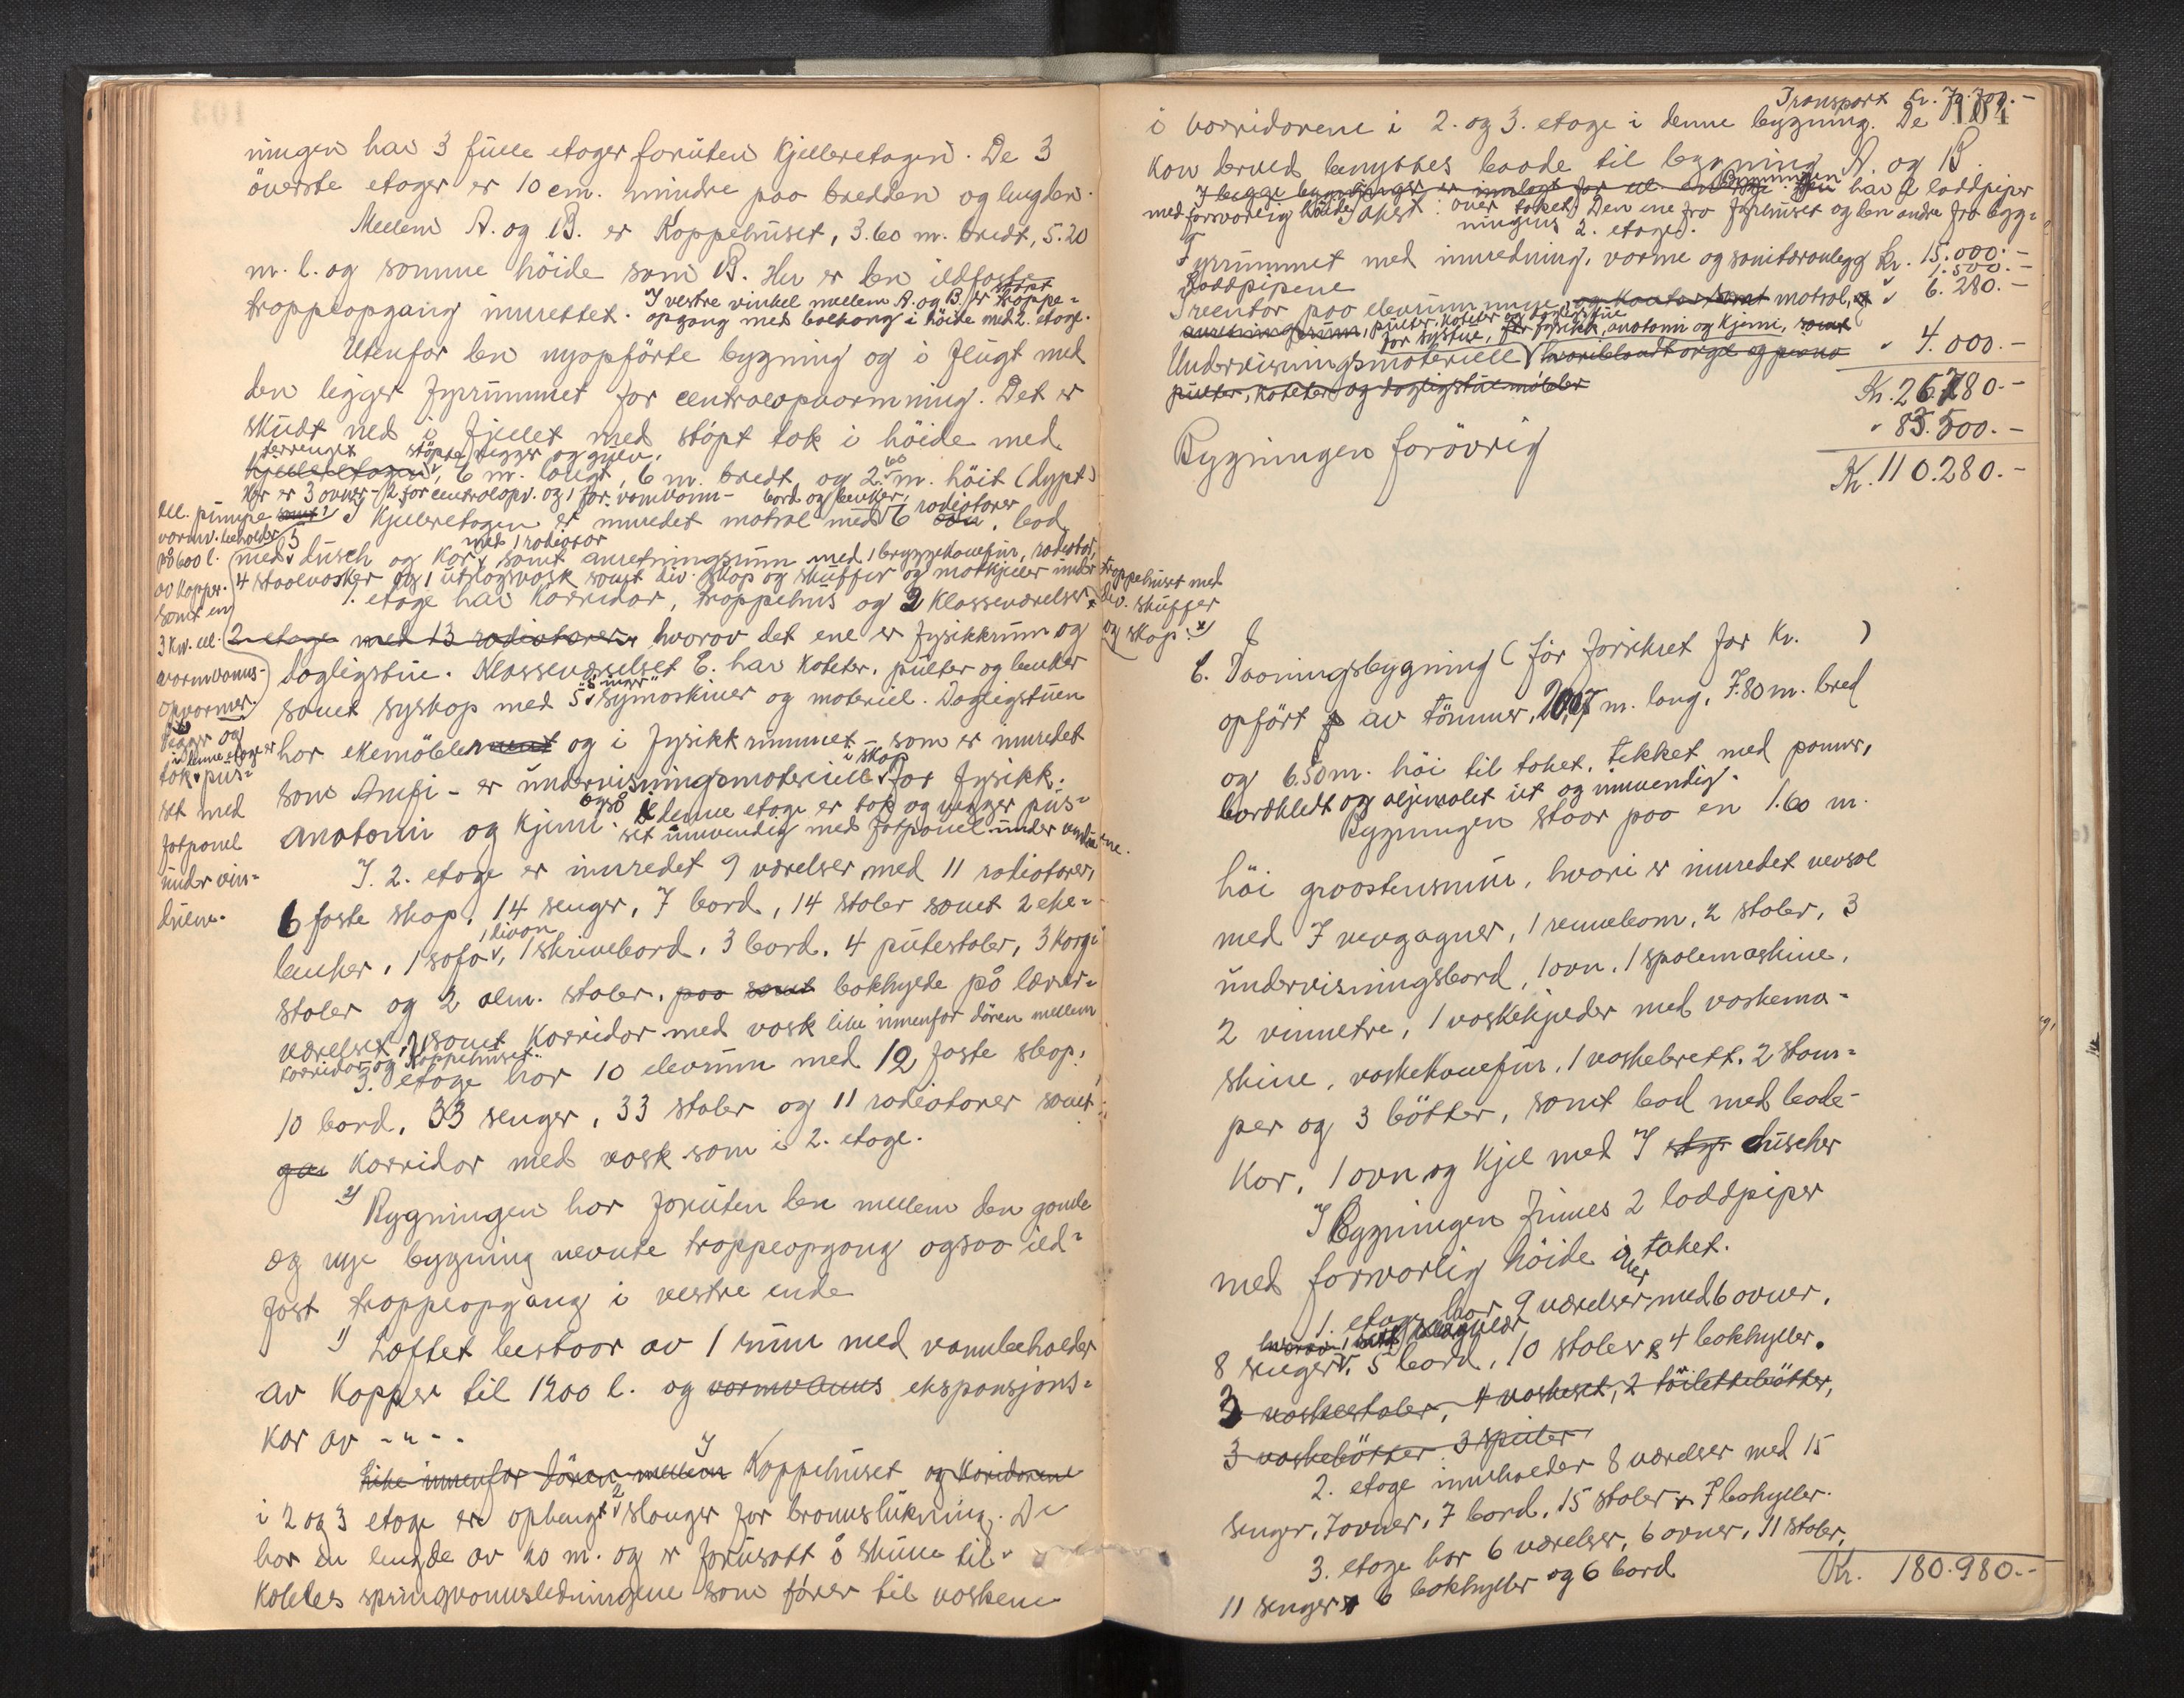 ningen har 3 fulle etager foruten Kjelleretagen. De 3
øverste etager er 10 cm. mindre paa bredden og lengden.
Mellem A. og B. er Trappehuset, 3.60 m. bredt, 5.20
m. l. og samme höide som B. Her er den ildfaste støpt
trappeopgang innrettet. I vestre vinkel mellem A. og B. er trappe-
opgang med balkong i höide med 2. etage.
Utenfor den nyopförte bygning og i flugt med
den ligger fyrrummet for centralopvarmning. Det er
skudt ned i fjellet med støpt tak i höide med
terrenget støpte vegger og gulv.
kjelleretagen, 6 m. langt, 6 m. bredt og 2.60 m. höit (dypt)
Her er 3 ovner - 2 for centralopv. og 1 for varmvann - bord og benker,
I Kjelleretagen er innredet matsal med 6 radiatorer, bad
med 5 dusch og Kar med 1 radiator, samt anretningsrum med 1 bryggekomfur, radiator,
4 staalvasker og 1 utslagsvask samt div. skap og skuffer og matkjeller under trappehuset med
div. skuffer
og skap.
1. etage har Korridor, trappehus og 2 Klasseværelser,
2 etage med 13 radiatorer, hvorav det ene er fysikkrum og
dagligstue. Klasseværelset E. har kateter, pulter og benker
samt syskap med 5 "Singer" symaskiner og materiel. Dagligstuen
har ekemöblement og i fysikkrummet - som er innredet
som Amfi - er undervisningsmateriell i skap for fysikk,
anatomi og Kjemi. Også i denne etage er tak og vegger pus-
set innvendig med fotpanel under vinduene.
el. pumpe samt
varmv. beholder
på 600 l.
av Kopper.
samt en
3 Kw. el.
varmvanns-
opvarmer.
Vegger og
tak i denne etage er
pus-
set med
fotpanel
under vin-
duene.
I 2. etage er innredet 9 værelser med 11 radiatorer,
6 faste skap, 14 senger, 7 bord, 14 stoler samt 2 eke-
benker, 1 sofa, 1 divan, 1 skrivebord, 3 bord, 4 putestoler, 3 Korg-
stoler og 2 alm. stoler, paa samt bokhylde på lærer-
værelset, samt Korridor med vask like innenfor dören mellem
Korridor og Trappehuset.
3. etage har 10 elevrum med 12 faste skap,
10 bord, 33 senger, 33 stoler og 11 radiatorer samt
Korridor med vask som i 2. etage.
2) Bygningen har foruten den mellem den gamle
og nye bygning nevnte trappeopgang ogsaa ild-
fast trappeopgang i vestre ende
1) Loftet bestaar av 1 rum med vannbeholder
av Kopper til 1200 l. og varmvanns ekspansjons-
kar av -"- -
Like innenfor dören mellem I Trappehuset og Koridorene
i 2 og 3 etage er ophengt 2 slanger for brannslukning. De
har en lengde av 20 m. og er forutsatt å skulle til-
kobles springvannsledningene som förer til vaskene
Transport Kr. 70.700.-
104
i Korridorene i 2. og 3. etage i denne bygning. De
kan derved benyttes baade til bygning A. og B.
I begge bygninger er innlagt for el. energi. Bygningen har 2 loddpiper
med forsvarlig höide over taket. Den ene fra fyrhuset og den andre fra byg-
ningens 2. etage.
Fyrrummet med innredning, varme og sanitæranlegg Kr. 15.000.-
Loddpipene 1.500.-
Inventar paa elevrummene, og Kontor samt matsal, " 6.280.-
anretningsrum, pulter, kateter og dagligstue
for systue, for fysikk, anatomi og Kjemi, samt
Undervisningsmateriell hvoriblandt orgel og piano " 4.000.-
pulter, kateter og dagligstuemöbler
Kr. 26.780.-
Bygningen forövrig " 83.500.-
Kr. 110.280.-
C. Vaaningsbygning (för forsikret for Kr. )
opfört av tömmer, 20,07 m. lang, 7.80 m. bred
og 6.50 m. höi til taket, tekket med panner,
bordkledt og oljemalet ut og innvendig.
Bygningen staar paa en 1.60 m.
höi graastensmur, hvori er innredet vevsal
med 7 vevgagner, 1 rennebom, 2 stoler, 3
undervisningsbord, 1 ovn, 1 spolemaskine,
2 vinnetre, 1 vaskekjeder med vaskema-
skine, vaskekomfur, 1 vaskebrett, 2 stam-
per og 3 bötter, samt bad med bade-
Kar, 1 ovn og Kjel med 7 duscher
I Bygningen finnes 2 loddpiper
med forsvarlig höide over taket.
1. etage har 9 værelser med 6 ovner,
8 senger, 5 bord, 10 stoler, 4 bokhyller.
3 vaskestoler, 4 vaskeset, 2 toilettebötter,
3 vaskebötter 3 speiler
2. etage inneholder 8 værelser med 15
senger, 7 ovner, 7 bord, 15 stoler, 7 bokhyller.
3. etage har 6 værelser, 6 ovner, 11 stoler,
11 senger, 6 bokhyller og 6 bord
Kr. 180.980.-